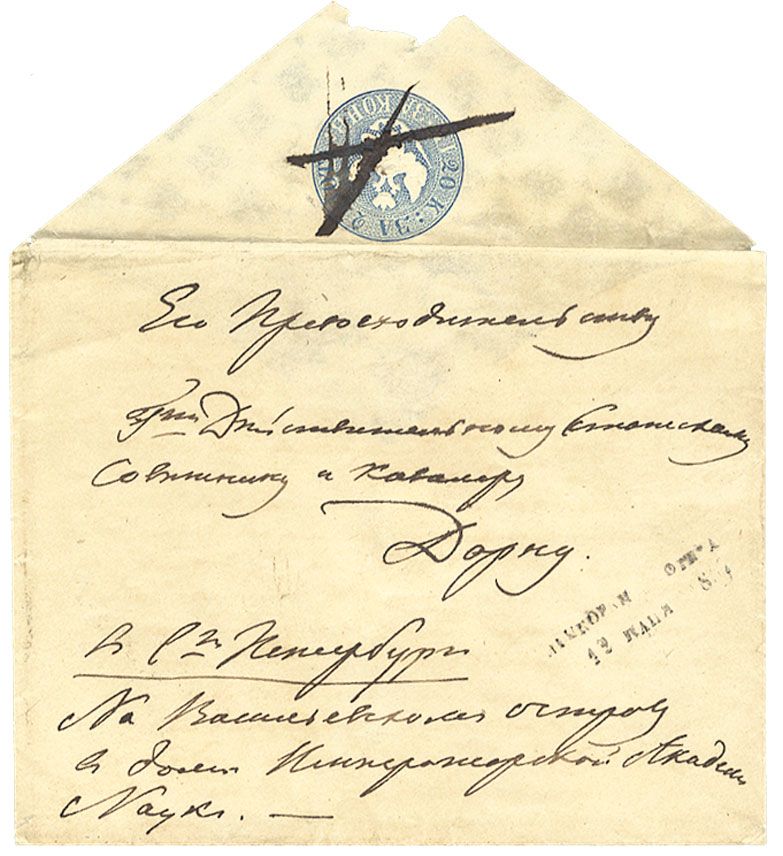 20 К: ЗА
Его Превосходительству
Гну Действительному Статскому
Советнику и Кавалеру
Дорну.
въ С. Петербургъ
На Васильевскомъ острову
въ доме Императорской Академiи
Наукъ. —
12 МАЯ